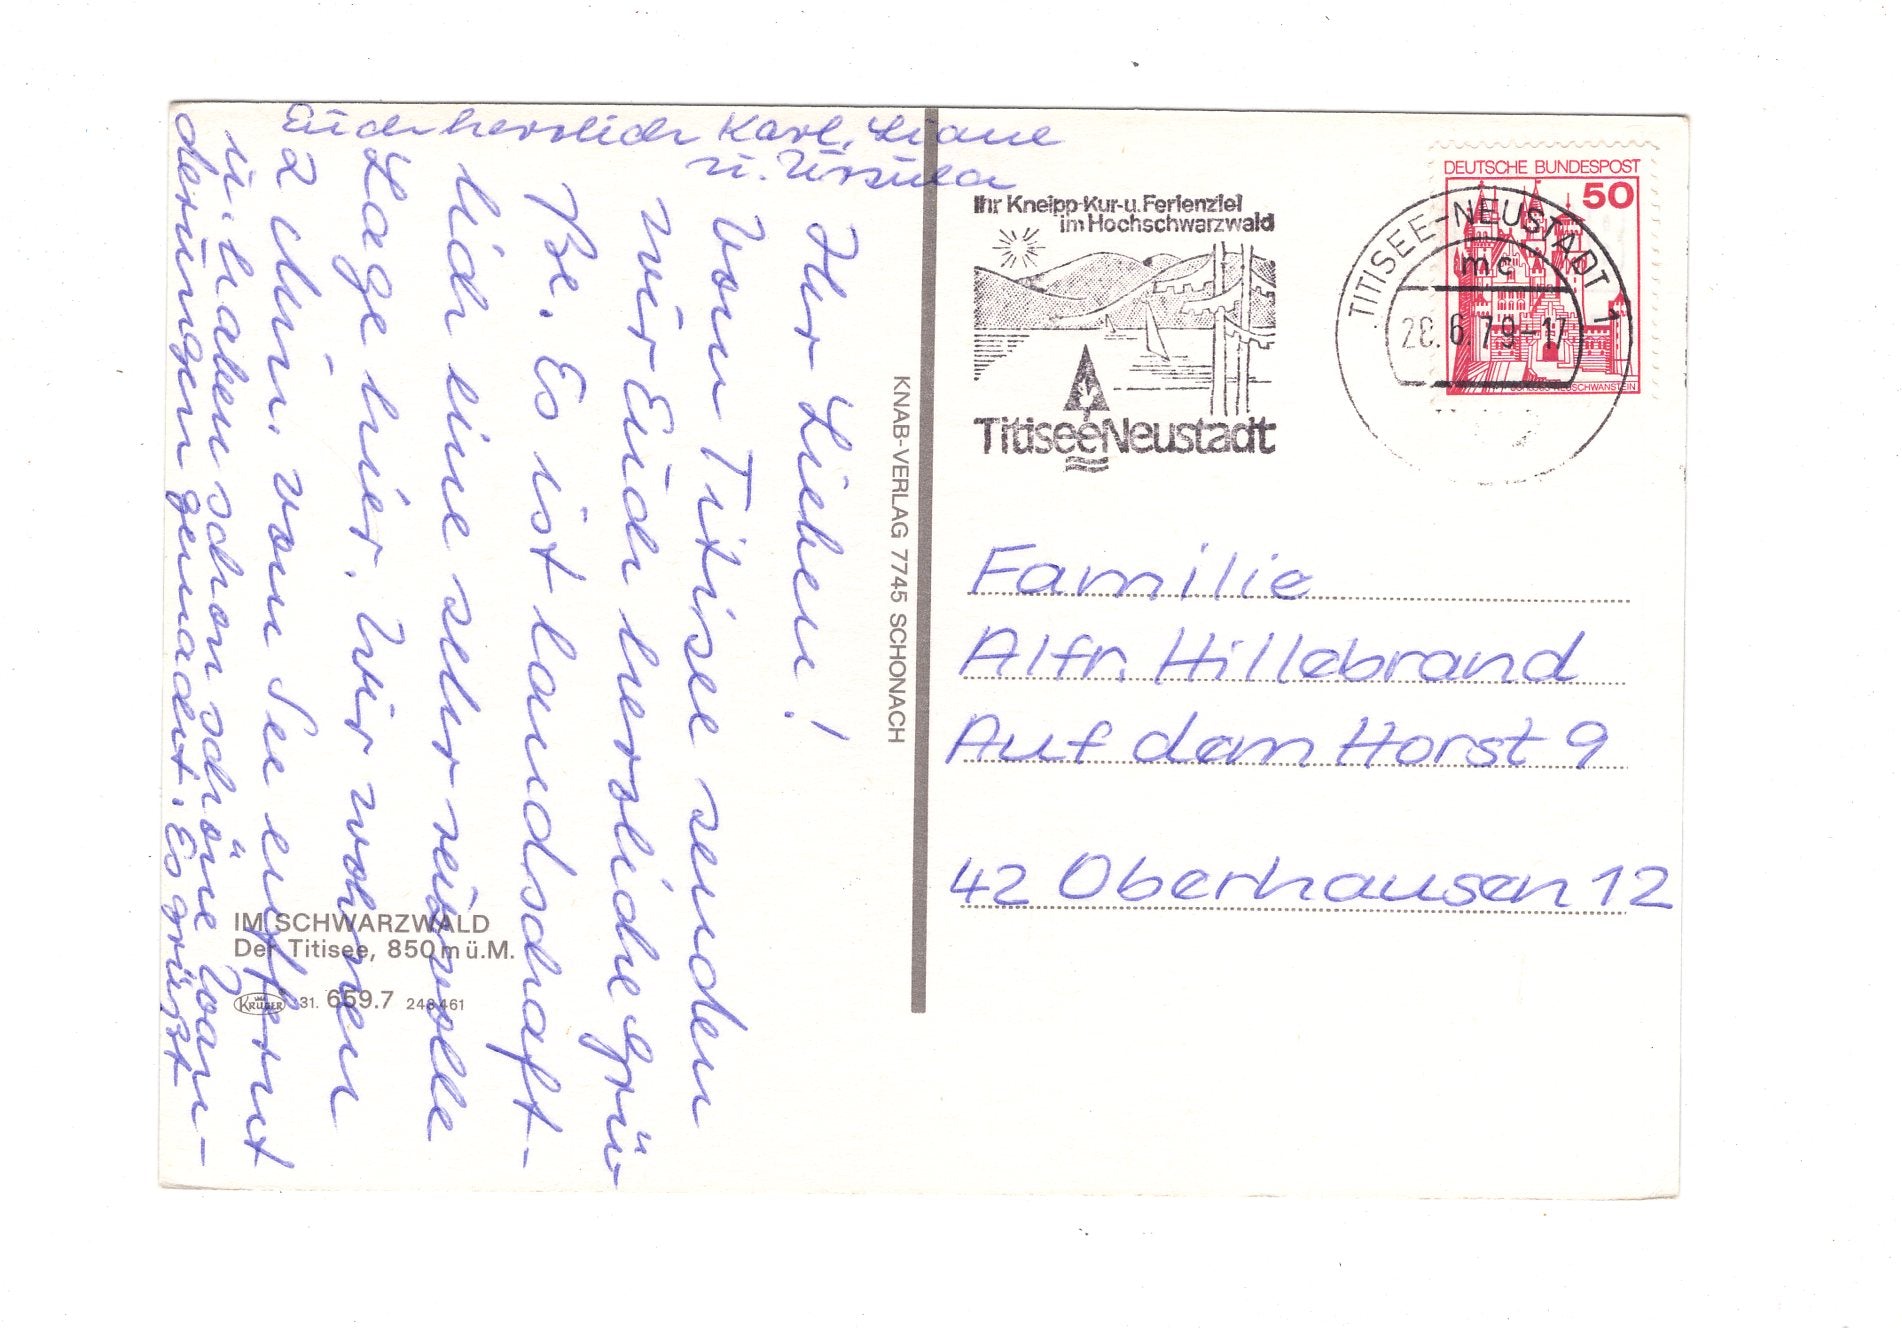 Ihr Lieben!
Vom Titisee senden
wir Euch herzliche Grü-
ße. Es ist landschaft-
lich eine sehr reizvolle
Lage hier. Wir wohnen
2 Min. vom See entfernt
u. haben schon schöne Wan-
derungen gemacht. Es grüßt
Euch herzlich Karl, Liane
u. Ursula
IM SCHWARZWALD
Der Titisee, 850 m ü.M.
KRÜGER 31. 659.7 248461
KNAB-VERLAG 7745 SCHONACH
Ihr Kneipp-Kur-u. Ferienziel
im Hochschwarzwald
Titisee Neustadt
DEUTSCHE BUNDESPOST
50
SCHLOSS NEUSCHWANSTEIN
TITISEE-NEUSTADT 1
mc
28.6.79-17
Familie
Alfr. Hillebrand
Auf dem Horst 9
42 Oberhausen 12